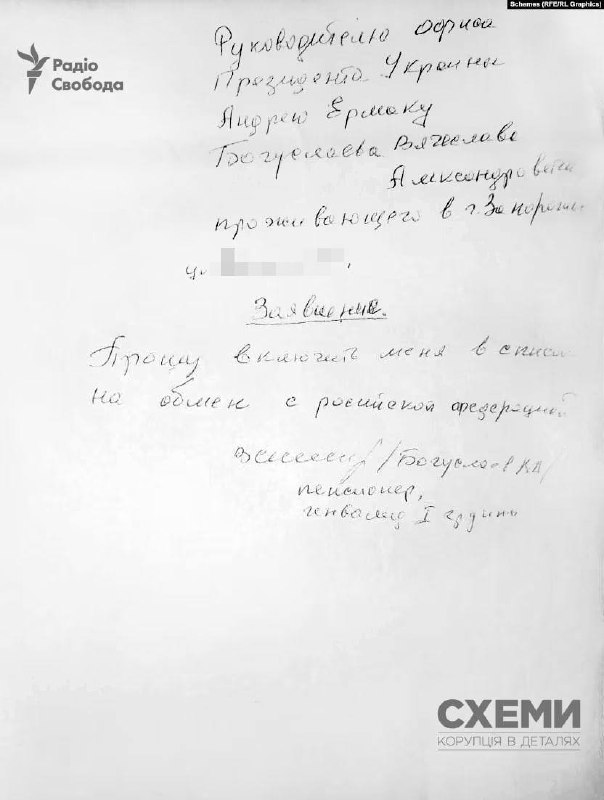 Schemes (RFE/RL Graphics)
Радіо
Свобода
Руководителю офиса
Президента Украины
Андрею Ермаку
Богуслаева Вячеслава
Александровича
проживающего в г. Запорожье
ул.
Заявление.
Прошу включить меня в список
на обмен с росийской федерацией
/Богуслаев ВА/
пенсионер,
инвалид I группы
СХЕМИ
КОРУПЦІЯ В ДЕТАЛЯХ